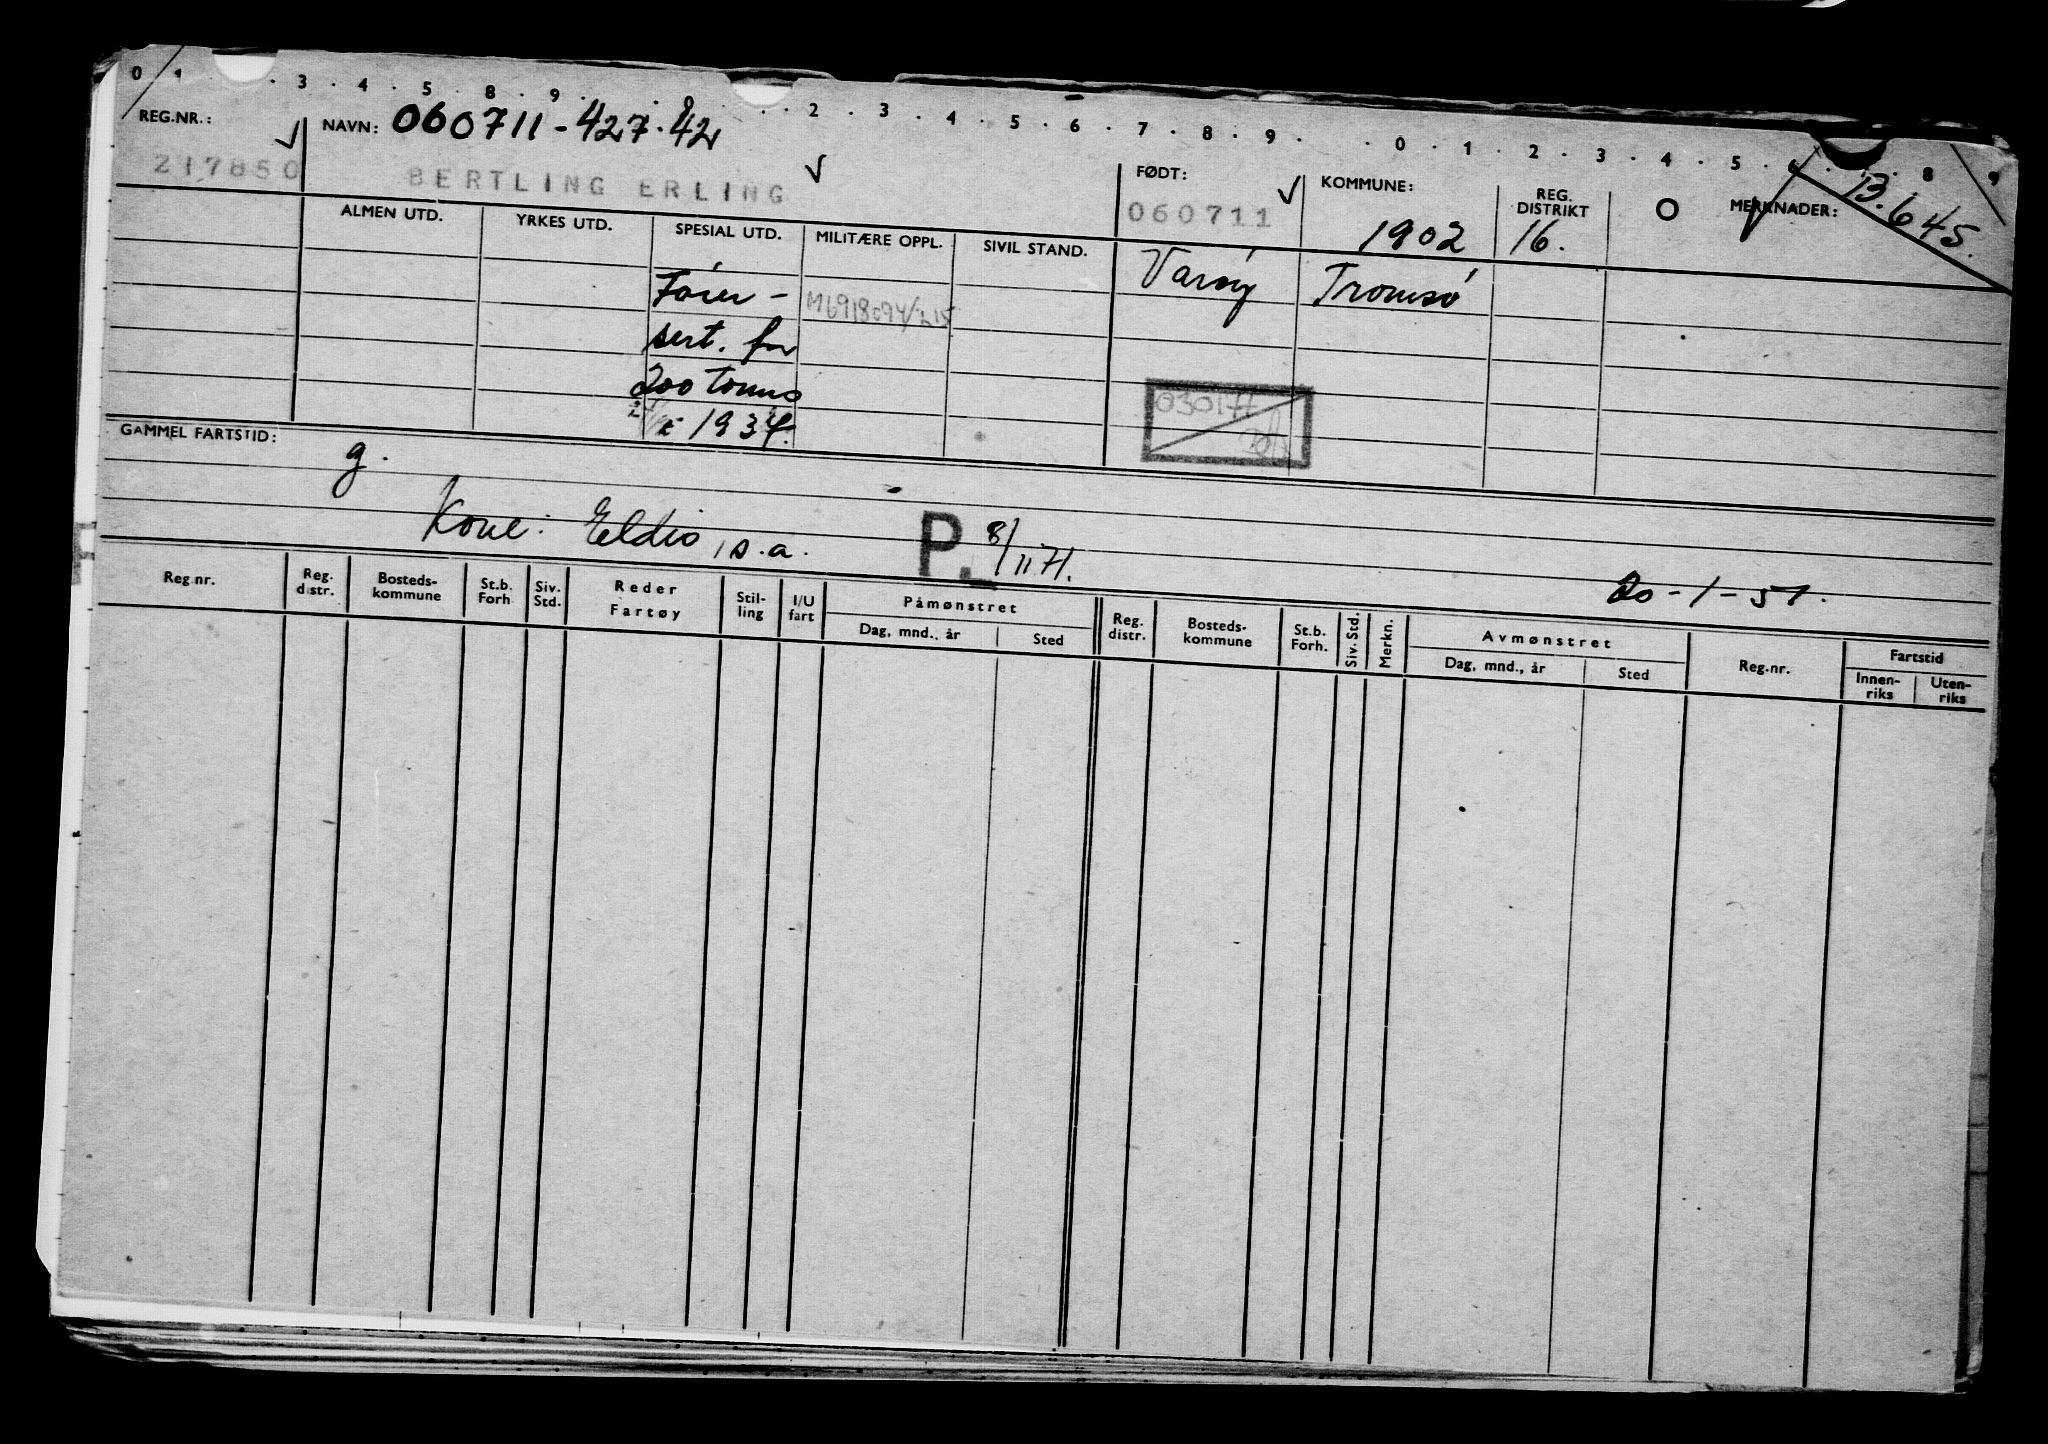 0 1 3 4 5 8 9 0 2 3 4 5 6 7 8 9 0 1 2 3 4 5 6 8 9
REG.NR.: NAVN: 060711-427.42 FØDT: KOMMUNE: REG. DISTRIKT O MERKNADER: 13.645.
217850 BERTLING ERLING 060711 1902 16.
ALMEN UTD. YRKES UTD. SPESIAL UTD. MILITÆRE OPPL. SIVIL STAND. Varöy Tromsö
Förer-
sert. for
200 tonns
i 1934.
GAMMEL FARTSTID: g.
Kone: Eldis, s.a. P. 8/11 71.
20-1-51.
Reg.nr. Reg. distr. Bosteds-kommune St.b. Forh Siv. Std. Reder Fartøy Stil-ling I/U fart Påmønstret Reg. distr. Bosteds-kommune St.b. Forh. Siv. Std. Merkn. Avmønstret Reg.nr. Fartstid
Dag, mnd., år Sted Dag, mnd., år Sted Innen-riks Uten-riks